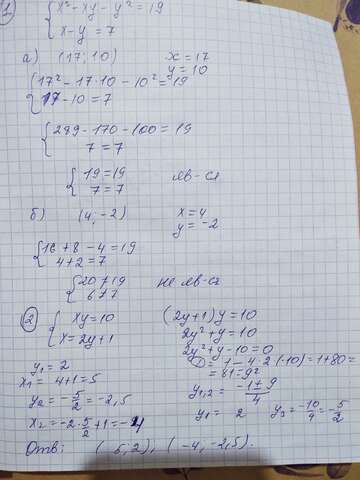 1) { x² - xy - y² = 19
x - y = 7
а) (17; 10) x = 17
y = 10
{ 17² - 17·10 - 10² = 19
17 - 10 = 7
{ 289 - 170 - 100 = 19
7 = 7
{ 19 = 19
7 = 7 яв-ся
б) (4, -2) x = 4
y = -2
{ 16 + 8 - 4 = 19
4 + 2 = 7
{ 20 ≠ 19
6 ≠ 7 не яв-ся
2) { xy = 10
x = 2y + 1
(2y + 1) y = 10
2y² + y = 10
2y² + y - 10 = 0
D = 1 - 4·2·(-10) = 1 + 80 =
= 81 = 9²
y1,2 = -1 ± 9 / 4
y1 = 2 y2 = -10/4 = -5/2
y1 = 2
x1 = 4 + 1 = 5
y2 = -5/2 = -2,5
x2 = -2·5/2 + 1 = -4
Отв: (5; 2), (-4, -2,5).